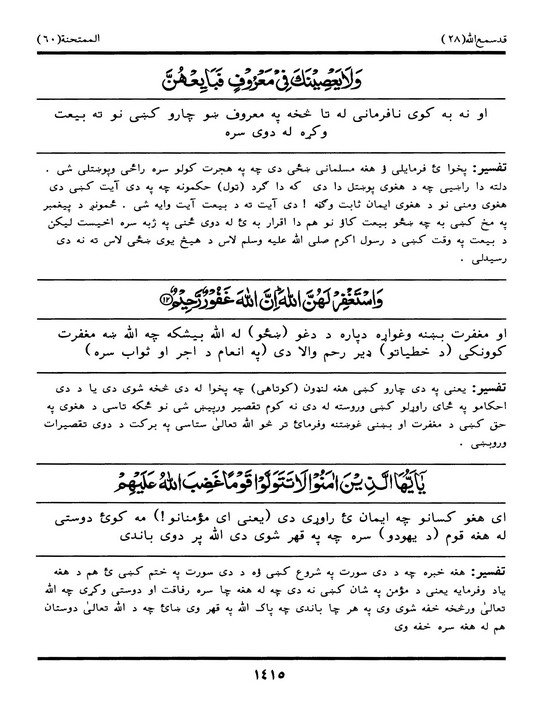 قدسمع الله (٢٨)
الممتحنة (٦٠)
وَلَا يَعْصِيْنَكَ فِيْ مَعْرُوْفٍ فَبَايِعْهُنَّ
او نه به کوی نافرمانی له تا څخه په معروف ښو چارو کښی نو ته بیعت
وکړه له دوی سره
تفسیر: پخوا ئ فرمایلی ؤ هغه مسلمانی ښځی دی چه په هجرت کولو سره راځی وپوښتلی شی .
دلته دا راښیی چه د هغوی پوښتل دا دی که دا ګرد (تول) حکمونه چه په دی آیت کښی دی
هغوی ومنی نو د هغوی ایمان ثابت وګڼه ! دی آیت ته د بیعت آیت وایه شی . څمونږ د پیغمبر
په مخ کښی به چه ښځو بیعت کاؤ نو هم دا اقرار به ئ له دوی څنی په ژبه سره اخیست لیکن
د بیعت په وقت کښی د رسول اکرم صلی الله علیه وسلم لاس د هیڅ یوی ښځی لاس ته نه دی
رسیدلی .
وَاسْتَغْفِرْ لَهُنَّ اللّٰهَ اِنَّ اللّٰهَ غَفُوْرٌ رَّحِيْمٌ ﴿١٢﴾
او مغفرت بښنه وغواړه دپاره د دغو (ښځو) له الله بیشکه چه الله ښه مغفرت
کوونکی (د خطیاتو) ډیر رحم والا دی (په انعام د اجر او ثواب سره)
تفسیر: یعنی په دی چارو کښی هغه لنډون (کوتاهی) چه پخوا له دی څخه شوی دی یا د دی
احکامو په ځای راوړلو کښی وروسته له دی نه کوم تقصیر ورپیښ شی نو ځکه تاسی د هغوی په
حق کښی د مغفرت او بښنی غوښتنه وفرمائ تر څو الله تعالیٰ ستاسی په برکت د دوی تقصیرات
وروبښی .
يٰۤاَيُّهَا الَّذِيْنَ اٰمَنُوْا لَا تَتَوَلَّوْا قَوْمًا غَضِبَ اللّٰهُ عَلَيْهِمْ
ای هغو کسانو چه ایمان ئ راوړی دی (یعنی ای مؤمنانو!) مه کوئ دوستی
له هغه قوم (د یهودو) سره چه په قهر شوی دی الله پر دوی باندی
تفسیر: هغه خبره چه د دی سورت په شروع کښی وه د دی سورت په ختم کښی ئ هم د هغه
یاد وفرمایه یعنی د مؤمن په شان کښی نه دی چه له هغه چا سره رفاقت او دوستی وکړی چه الله
تعالیٰ ورڅخه خفه شوی وی په هر چا باندی چه پاک الله په قهر وی ښائ چه د الله تعالیٰ دوستان
هم له هغه سره خفه وی
١٤١٥